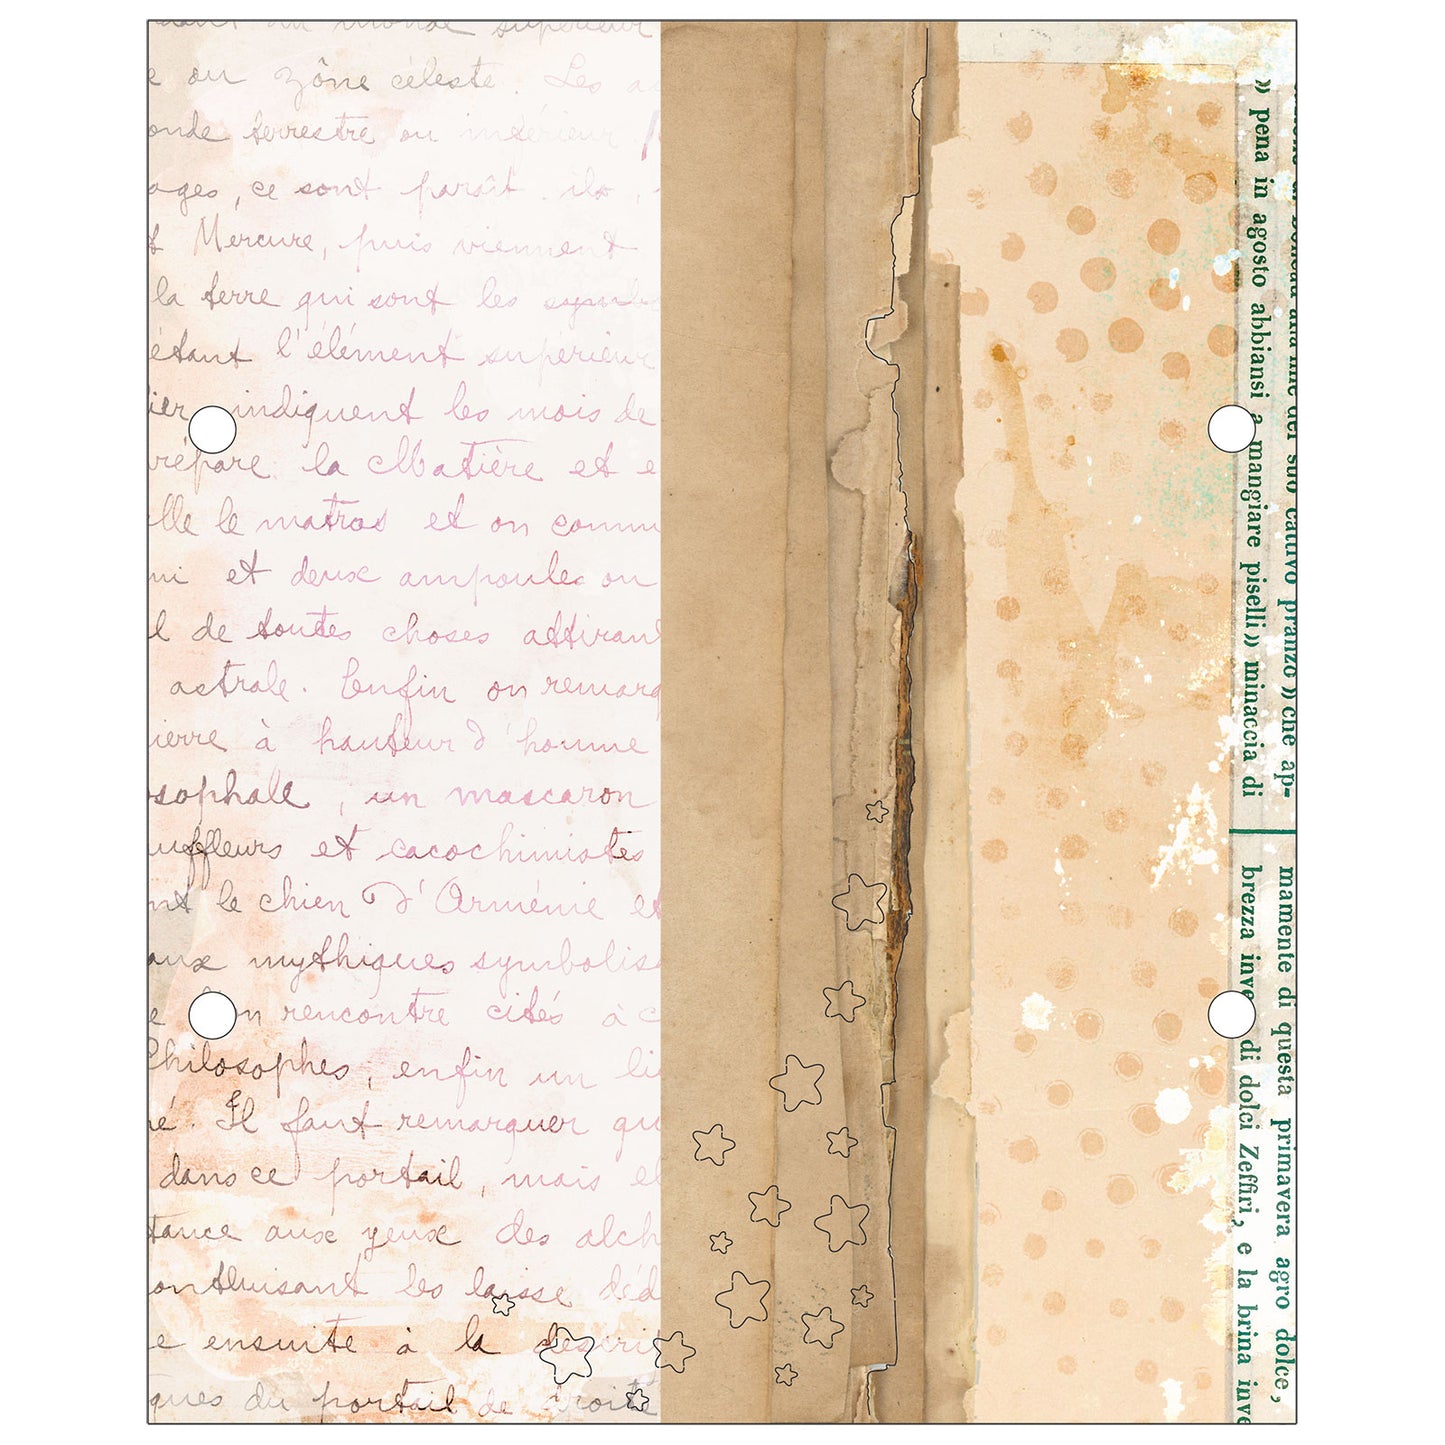 du monde superieur
e ou zône céleste. Les a
onde terrestre ou inferieur
ages, ce sont parait ils
t Mercure, puis viennent
la terre qui sont les symb
étant l'élément superieur
ier indiquent les mois de
répare la Matière et e
elle le matras et on comm
ni et deux ampoules on
l de toutes choses attirant
astrale. Enfin on remarq
ierre à hauteur d'homme
osophale, un mascaron
uffleurs et cacochimistes
nt le chien d'Arménie et
aux mythiques symbolis
e on rencontre cités à c
Philosophes, enfin un li
né. Il faut remarquer qu
dans ce portail, mais el
tance aux yeux des alch
onthuisant les laisse déd
e ensuite à la descri
ques du portail de droite
alla fine del suo cattivo pranzo » che ap-
» pena in agosto abbiansi a mangiare piselli » minaccia di
mamente di questa primavera agro dolce,
brezza inve di dolci Zeffiri, e la brina inve